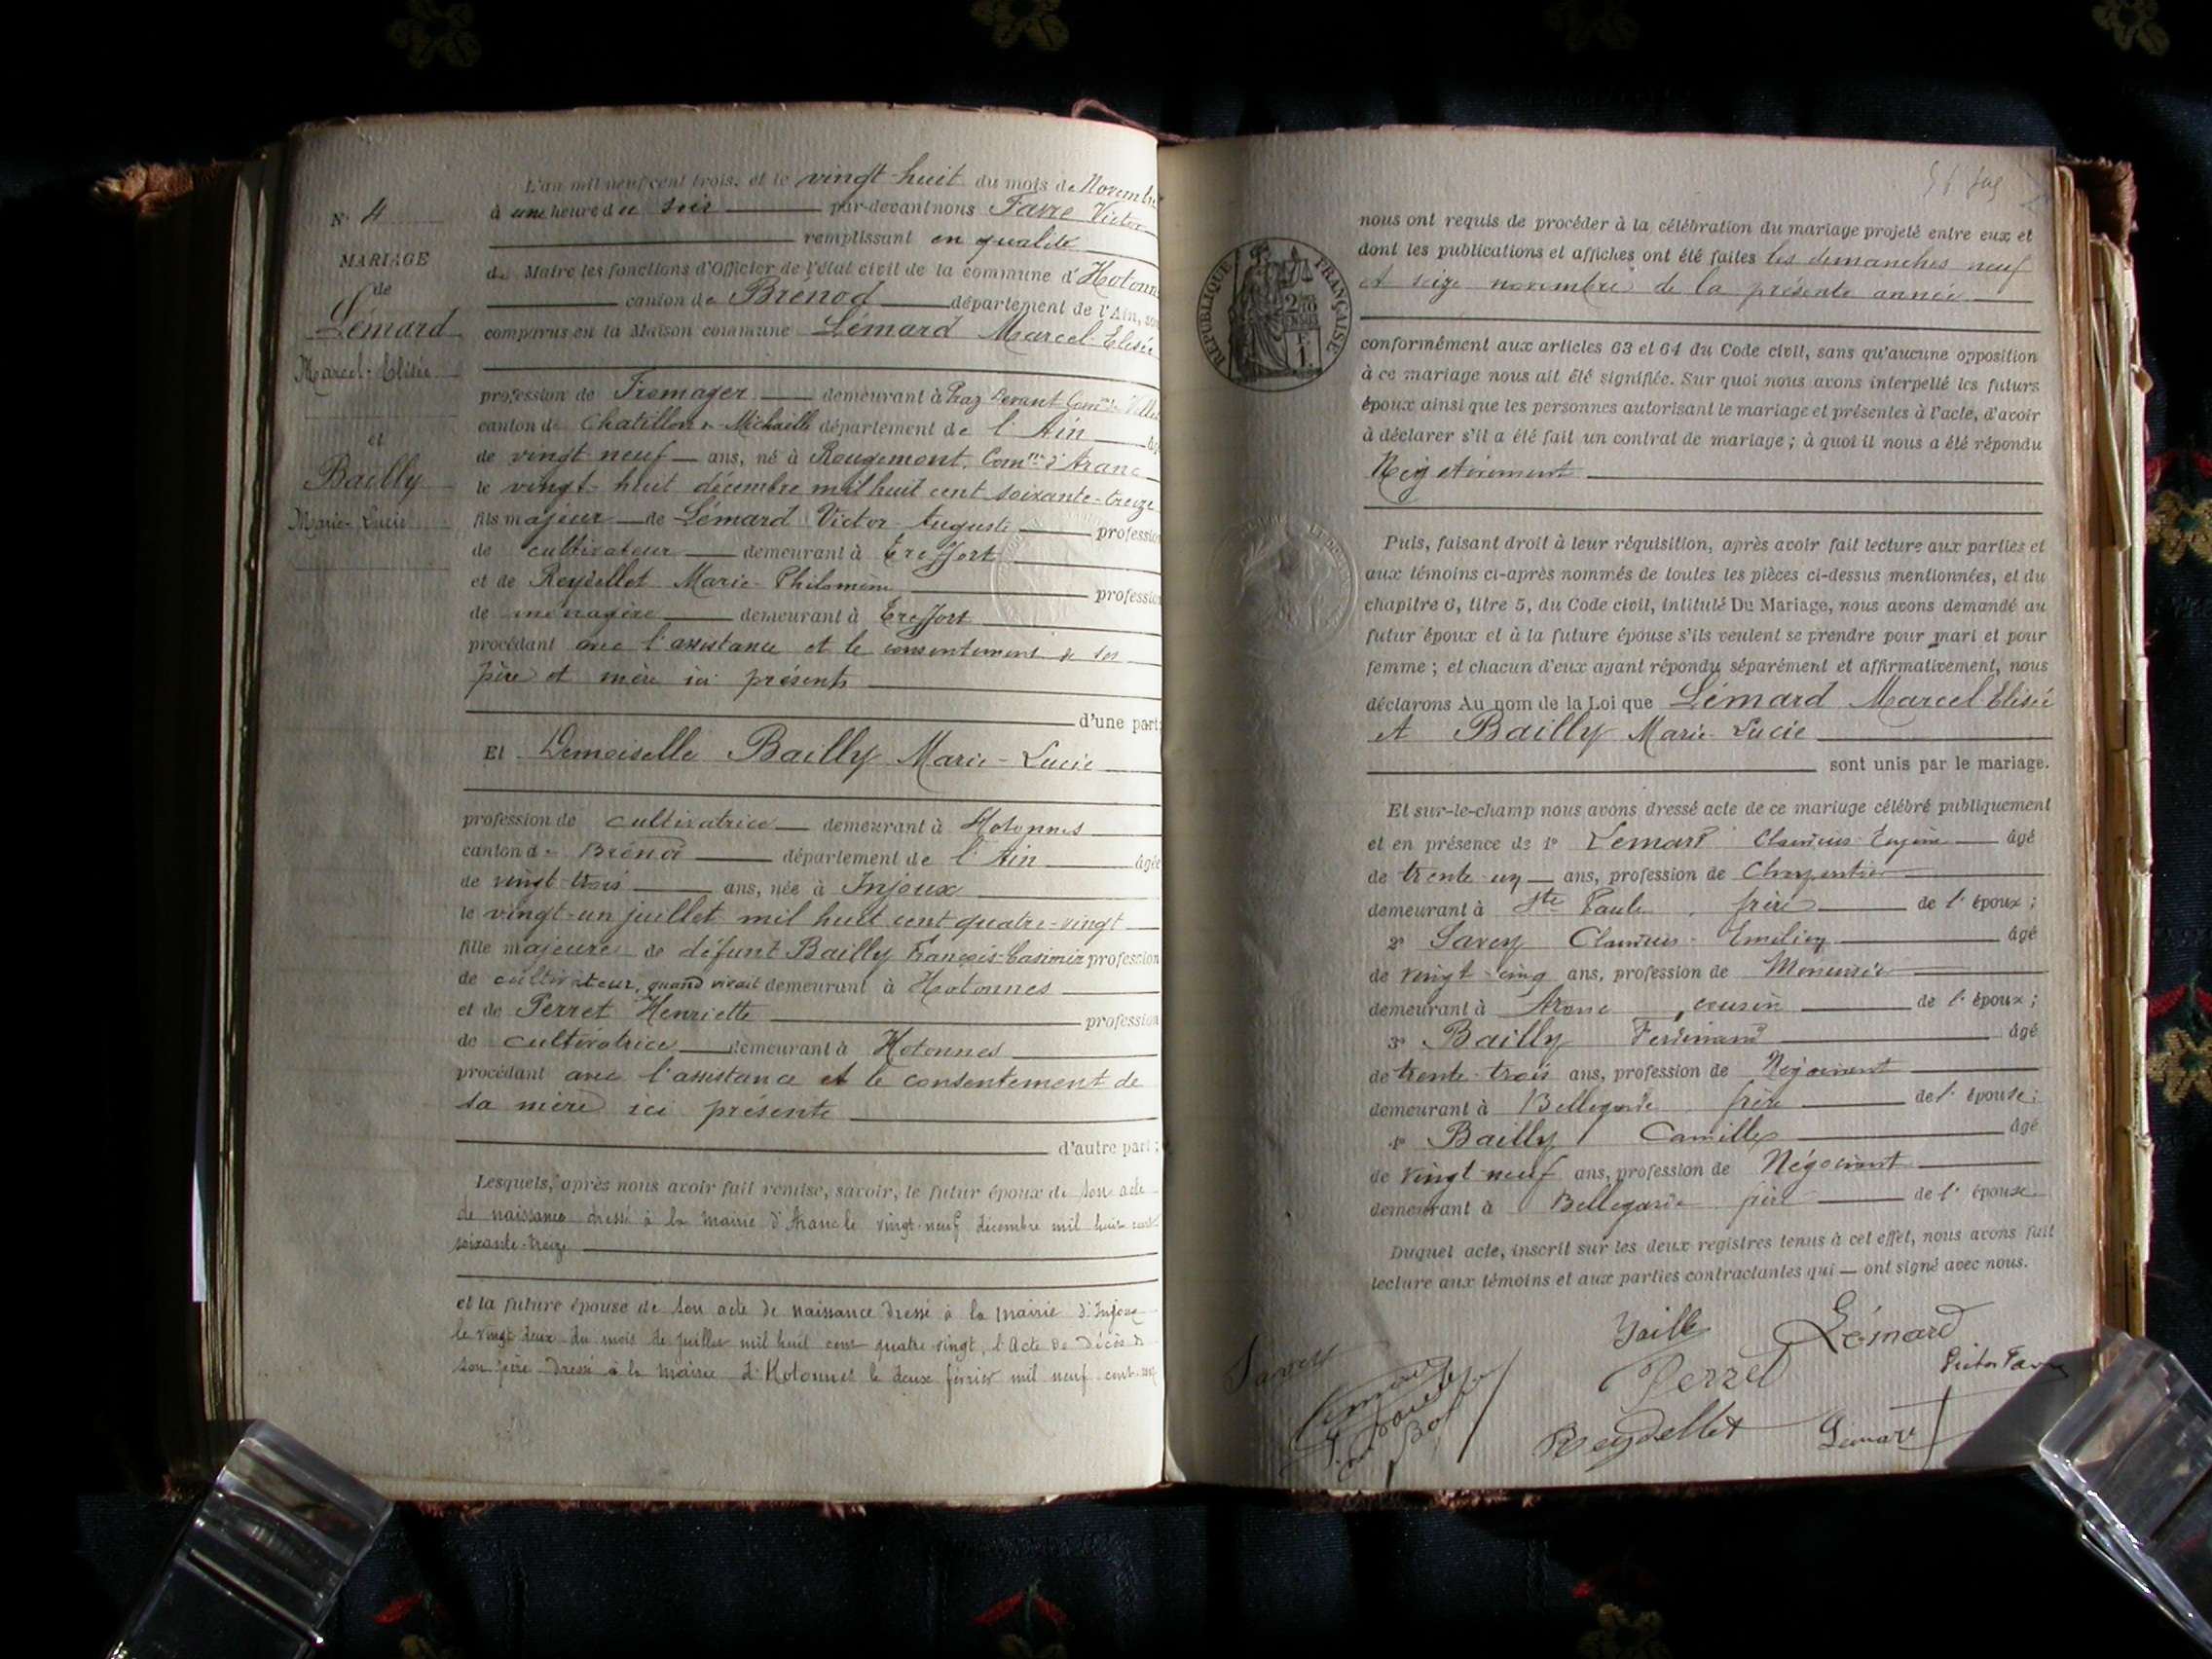 N° 4
MARIAGE
de
Lémard
Marcel-Elisée
et
Bailly
Marie-Lucie
L'an mil neuf cent trois, et le vingt-huit du mois de Novembre
à une heure du soir par-devant nous Favre Victor
remplissant en qualité
de Maire les fonctions d'Officier de l'état civil de la commune d'Hotonnes
canton de Brénod département de l'Ain, sont
comparus en la Maison commune Lémard Marcel-Elisée
profession de Fromager demeurant à Praz Devant Com^ne de
canton de Chatillon-Michaille département de l'Ain âgé
de vingt neuf ans, né à Rougemont, Com^ne d'Aranc
le vingt-huit décembre mil huit cent soixante-treize
fils majeur de Lémard Victor-Auguste profession
de cultivateur demeurant à Treffort
et de Reydellet Marie-Philomène profession
de ménagère demeurant à Treffort
procédant avec l'assistance et le consentement de ses
père et mère ici présents
d'une part;
Et Demoiselle Bailly Marie-Lucie
profession de cultivatrice demeurant à Hotonnes
canton de Brénod département de l'Ain âgée
de vingt-trois ans, née à Injoux
le vingt-un juillet mil huit cent quatre-vingt
fille majeure de défunt Bailly François-Casimir profession
de cultivateur, quand vivait demeurant à Hotonnes
et de Perret Henriette profession
de cultivatrice demeurant à Hotonnes
procédant avec l'assistance et le consentement de
sa mère ici présente
d'autre part;
Lesquels, après nous avoir fait remise, savoir, le futur époux de son acte
de naissance dressé à la mairie d'Aranc le vingt-neuf décembre mil huit cent
soixante-treize
et la future épouse de son acte de naissance dressé à la mairie d'Injoux
le vingt deux du mois de juillet mil huit cent quatre vingt, l'Acte de Décès de
son père dressé à la mairie d'Hotonnes le deux février mil neuf cent
RÉPUBLIQUE FRANÇAISE
nous ont requis de procéder à la célébration du mariage projeté entre eux et
dont les publications et affiches ont été faites les dimanches neuf
et seize novembre de la présente année
conformément aux articles 63 et 64 du Code civil, sans qu'aucune opposition
à ce mariage nous ait été signifiée. Sur quoi nous avons interpellé les futurs
époux ainsi que les personnes autorisant le mariage et présentes à l'acte, d'avoir
à déclarer s'il a été fait un contrat de mariage; à quoi il nous a été répondu
Négativement
Puis, faisant droit à leur réquisition, après avoir fait lecture aux parties et
aux témoins ci-après nommés de toutes les pièces ci-dessus mentionnées, et du
chapitre 6, titre 5, du Code civil, intitulé Du Mariage, nous avons demandé au
futur époux et à la future épouse s'ils veulent se prendre pour mari et pour
femme; et chacun d'eux ayant répondu séparément et affirmativement, nous
déclarons Au nom de la Loi que Lémard Marcel-Elisée
et Bailly Marie-Lucie
sont unis par le mariage.
Et sur-le-champ nous avons dressé acte de ce mariage célébré publiquement
et en présence de 1° Lemard Claudius-Eugène âgé
de trente-un ans, profession de Charpentier
demeurant à Ste Paule, frère de l'époux;
2° Savey Claudius-Emilien âgé
de vingt-cinq ans, profession de Menuisier
demeurant à Aranc, cousin de l'époux;
3° Bailly Ferdinand âgé
de trente-trois ans, profession de Négociant
demeurant à Bellegarde, frère de l'épouse;
4° Bailly Camille âgé
de vingt-neuf ans, profession de Négociant
demeurant à Bellegarde frère de l'épouse
Duquel acte, inscrit sur les deux registres tenus à cet effet, nous avons fait
lecture aux témoins et aux parties contractantes qui — ont signé avec nous.
Bailly Lémard
Perret Victor Favre
Savey
Reydellet Lémard